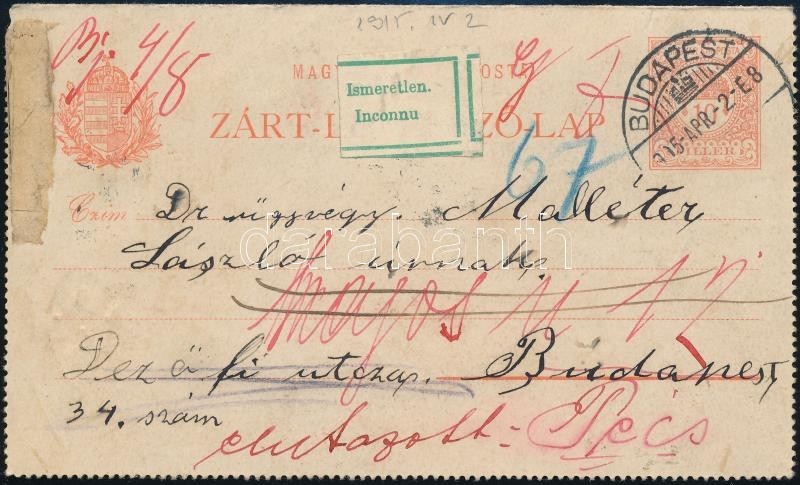 1915. IV 2
Bp 4/8
Ismeretlen.
Inconnu
MAG OSTA
ZÁRT-L ZŐLAP
BUDAPEST
915-APR-2-E8
10
FILLÉR
67
Czim Dr ügyvégy Malléter
László úrnak
Dezsőfi utcza. Budapest
34. szám
elutazott - Pécs
darabanth